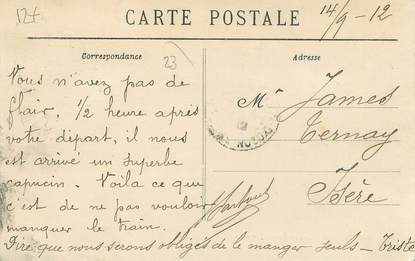 12+
CARTE POSTALE
14/9-12
Correspondance
23
Adresse
Vous n'avez pas de
flair, 1/2 heure après
votre départ, il nous
est arrivé un superbe
capucin. Voila ce que
c'est de ne pas vouloir
manquer le train.
Dire que nous serons obligés de le manger seuls – Triste
Mr James
Ternay
Isère